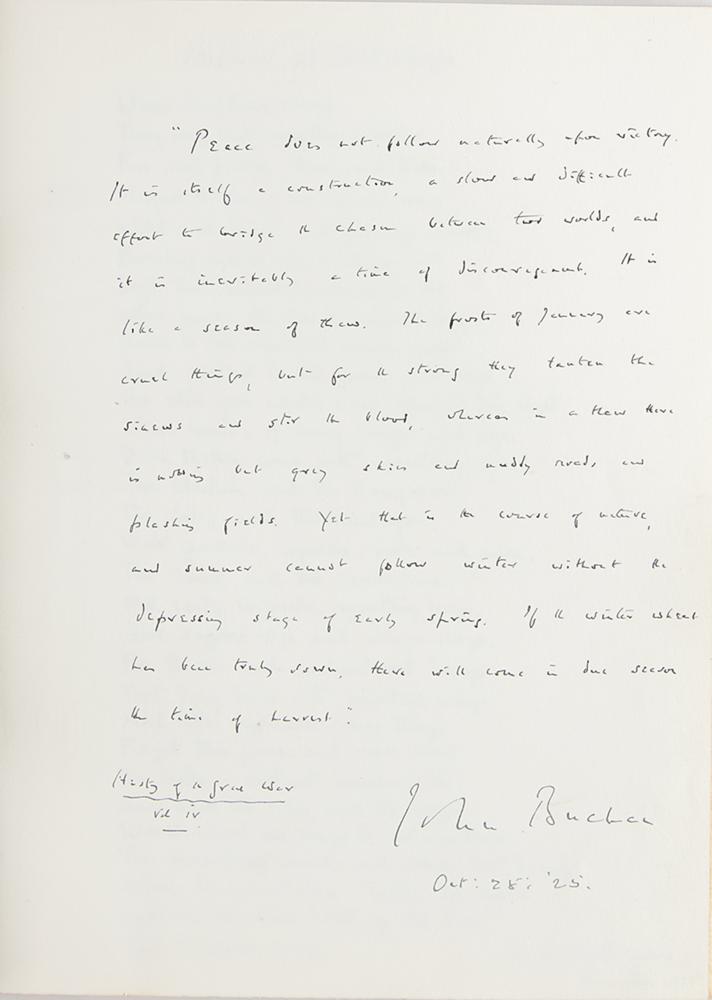 "Peace does not follow naturally upon victory.
It is itself a construction, a slow and difficult
effort to bridge the chasm between two worlds, and
it is inevitably a time of discouragement. It is
like a season of thaw. The frosts of January are
cruel things, but for the strong they tauten the
sinews and stir the blood, whereas in a thaw there
is nothing but grey skies and muddy roads and
plashing fields. Yet that is the course of nature,
and summer cannot follow winter without the
depressing stage of early spring. If the winter wheat
has been truly sown, there will come in due season
the time of harvest".
History of the Great War
Vol iv
John Buchan
Oct: 28: '25.